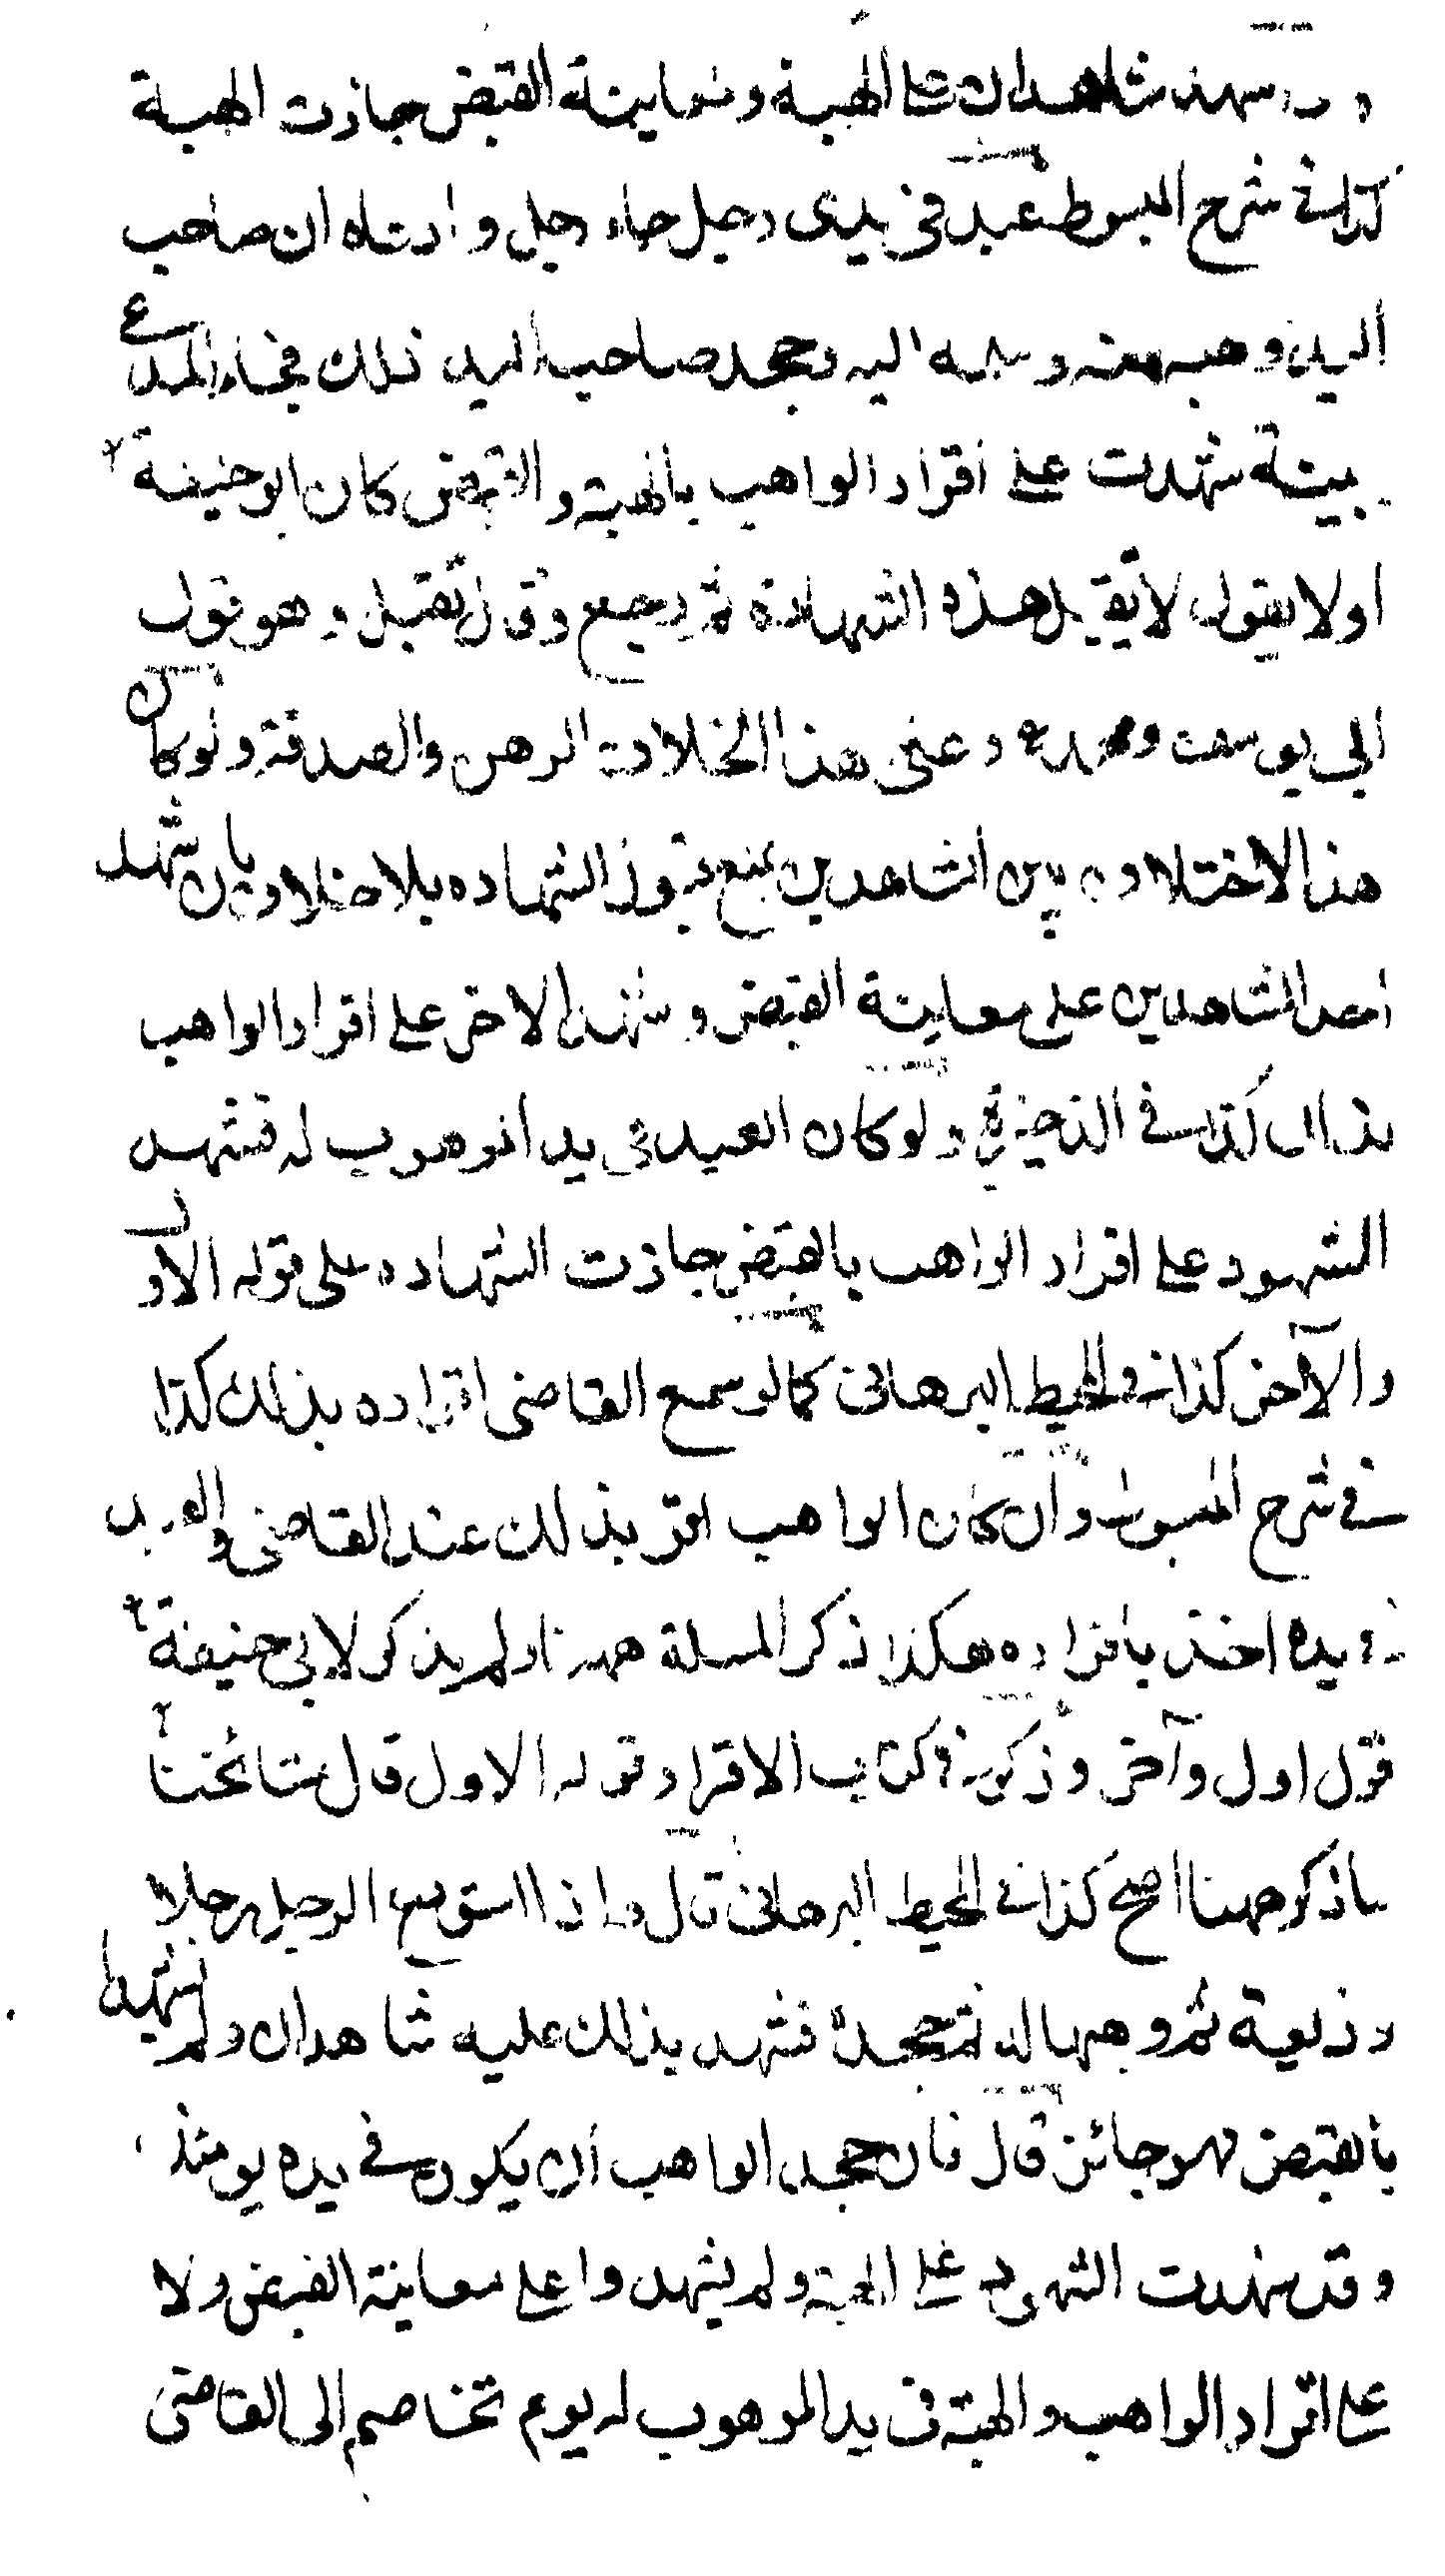 شهد شاهدان على الهبة ومعاينة القبض جازت الهبة
كذا فى شرح المبسوط عبد فى يدى رجل جاء رجل وادعاه ان صاحب
اليد وهبه منه وسلمه اليه وجحد صاحب اليد ذلك فجاء المدعى
ببينة شهدت على اقرار الواهب بالهبة والقبض كان ابو حنيفة
اولا يقول لا تقبل هذه الشهادة ثم رجع وقال تقبل وهو قول
ابى يوسف ومحمد وعلى هذا الخلاف الرهن والصدقة ولو كان
هذا الاختلاف بين الشاهدين يمنع قبول الشهاده بلا خلاف بان شهد
احد الشاهدين على معاينة القبض وشهد الاخر على اقرار الواهب
بذلك كذا فى الذخيرة ولو كان العبد فى يد الموهوب له فشهد
الشهود على اقرار الواهب بالقبض جازت الشهاده على قوله الاول
والآخر كذا فى المحيط البرهانى كما لو سمع القاضى اقراره بذلك كذا
فى شرح المبسوط وان كان الواهب اقر بذلك عند القاضى والعبد
فى يده اخذ باقراره هكذا ذكر المسلة ههنا ولم يذكر لابى حنيفة
قول اول وآخر وذكر فى كتاب الاقرار قوله الاول قال مشائخنا
ماذكر ههنا اصح كذا فى المحيط البرهانى قال واذا استودع الرجل رجلا
وديعة ثم وهبها له ثم جحده فشهد بذلك عليه شاهدان ولم يشهدا
بالقبض فهو جائز قال فان جحد الواهب ان يكون فى يده يومئذ
وقد شهدت الشهود على الهبة ولم يشهدوا على معاينة القبض ولا
على اقرار الواهب والهبة فى يد الموهوب له يوم تخاصم الى القاضى